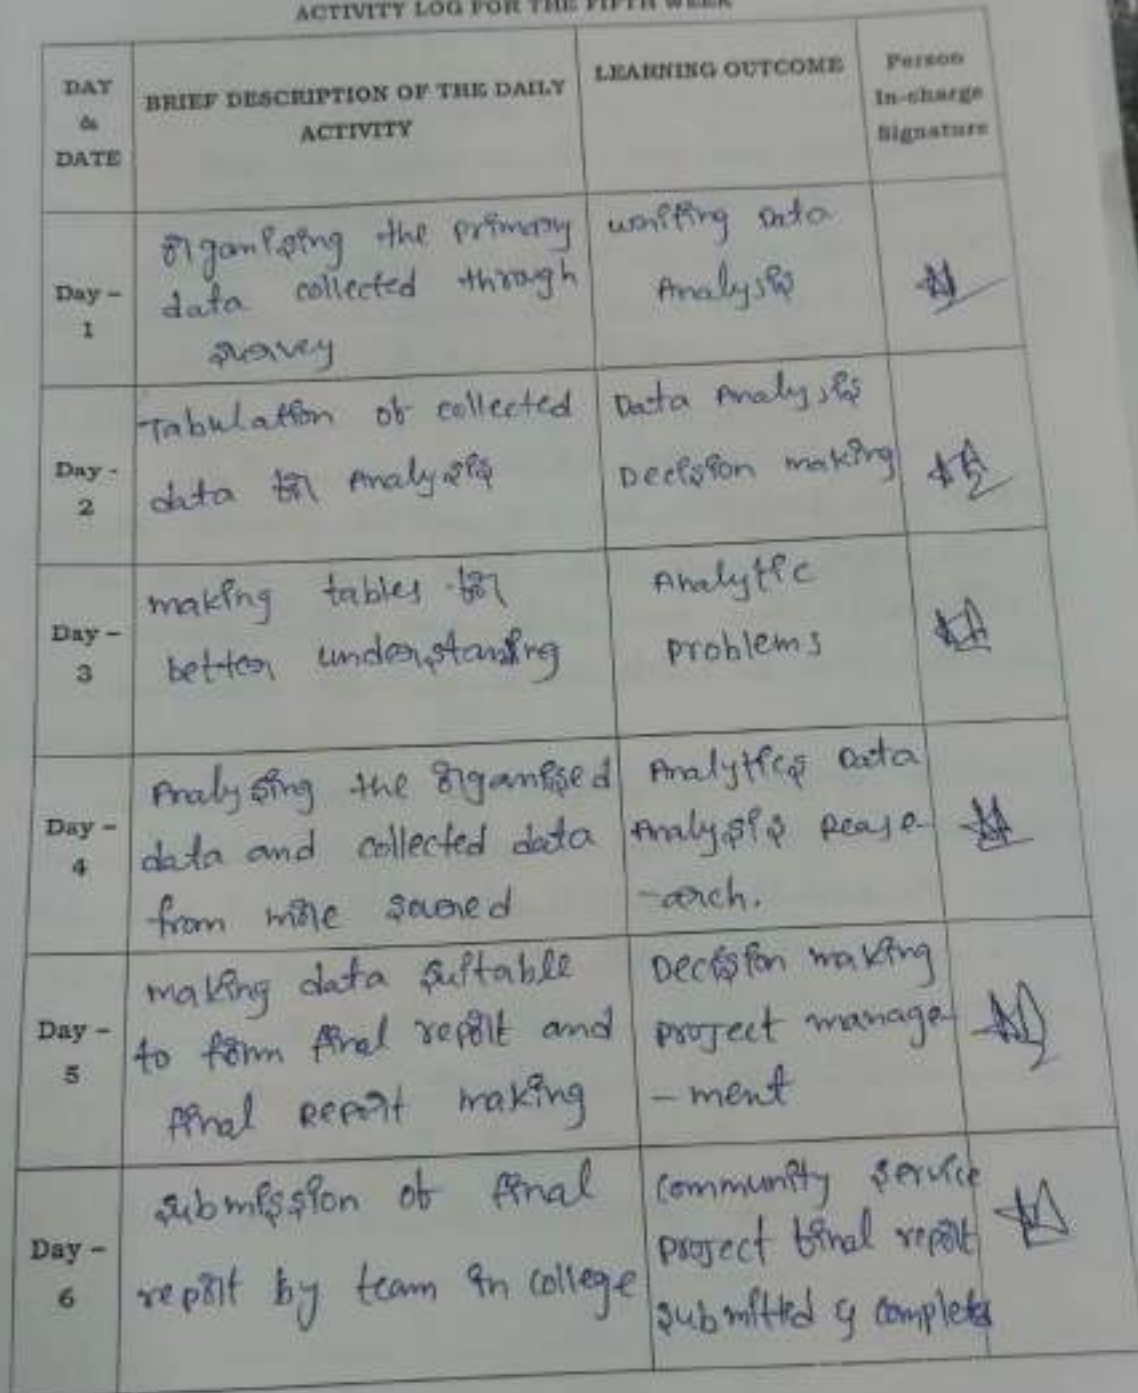 ACTIVITY LOG FOR THE FIFTH WEEK
DAY
&
DATE
BRIEF DESCRIPTION OF THE DAILY
ACTIVITY
LEARNING OUTCOME
Person
In-charge
Signature
Day –
1
organising the primary
data collected through
survey
writing Data
Analysis
Day -
2
Tabulation of collected
data for Analysis
Data Analysis
Decision making
Day –
3
making tables for
better understanding
Analytic
problems
Day –
4
Analysing the organised
data and collected data
from more
Analytics Data
Analysis Rease
-arch.
Day –
5
making data suitable
to form final report and
final Report making
Decision making
project manage
- ment
Day –
6
submission of final
report by team in college
community service
project final report
submitted & completed